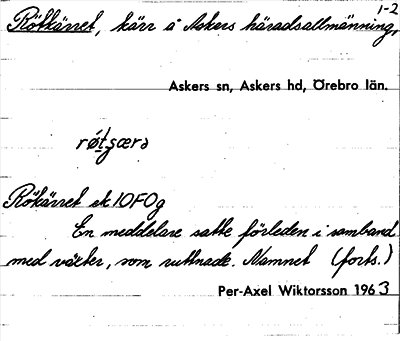 1-2
Rötkärret, kärr å Askers häradsallmänning,
Askers sn, Askers hd, Örebro län.
Rökärret ek 10F0g
En meddelare satte förleden i samband
med växter, som ruttnade. Namnet (forts.)
Per-Axel Wiktorsson 1963